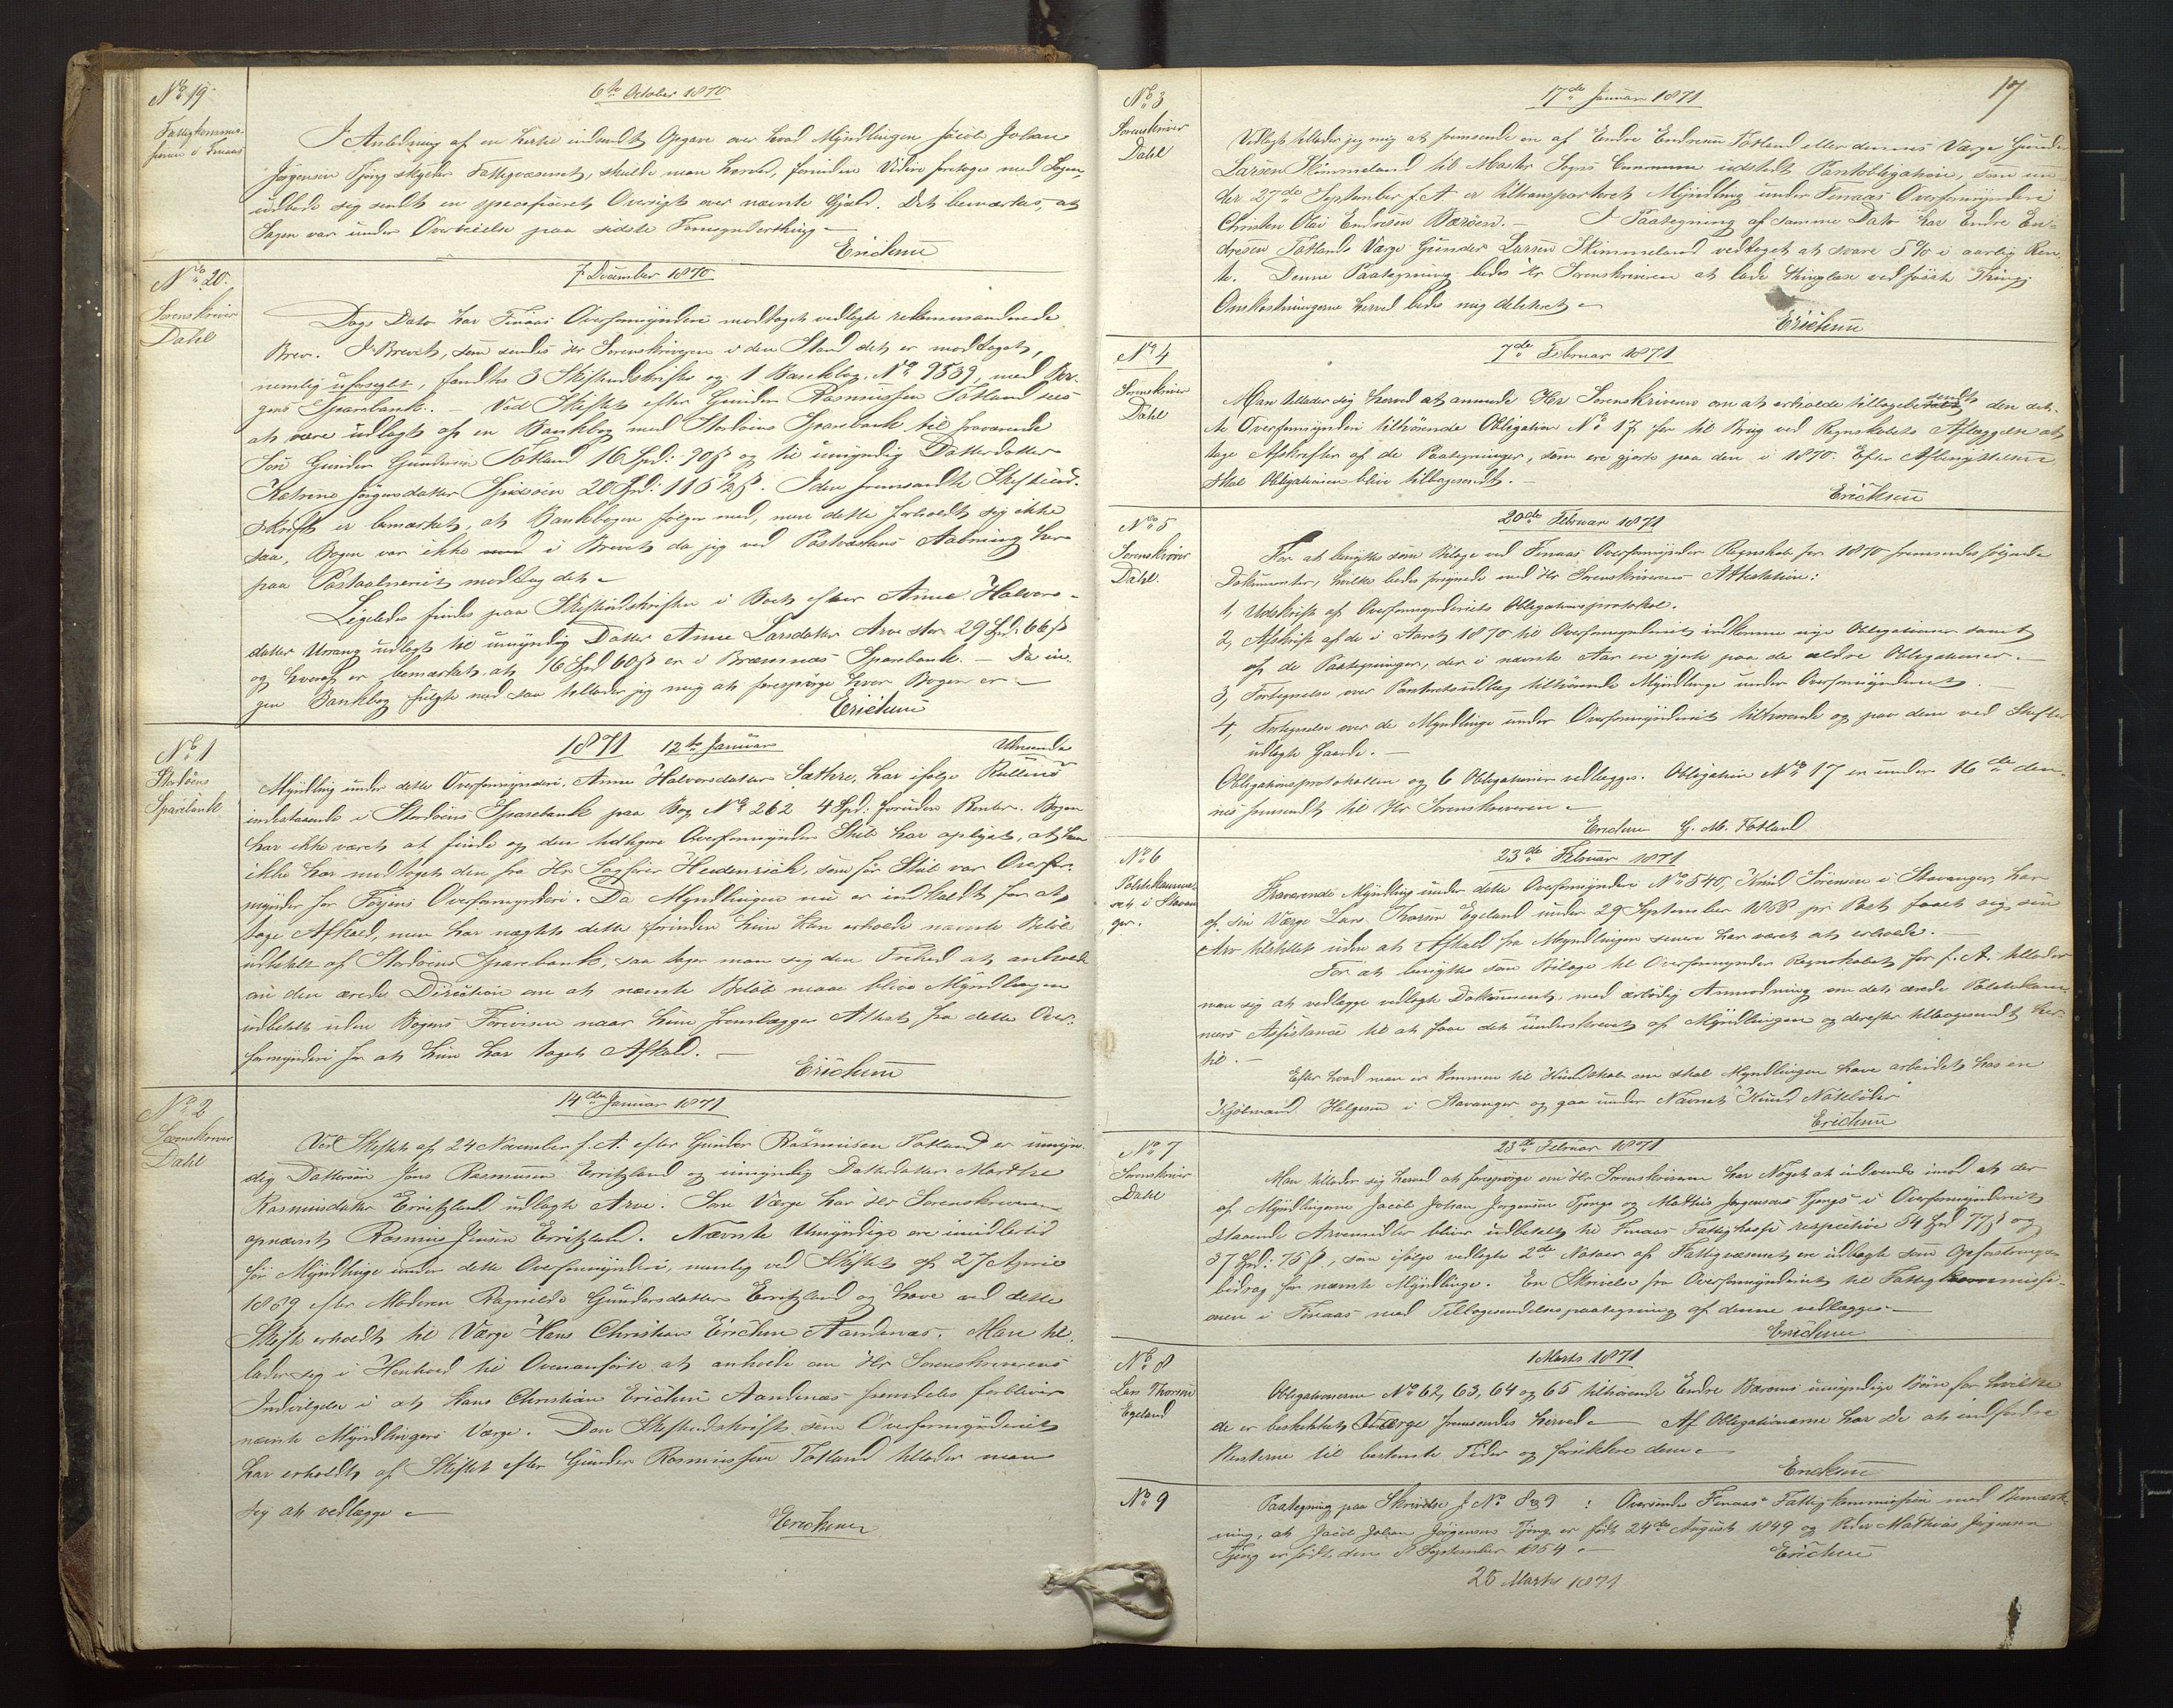 No 19.
Fattigkommis-
sionen i Finaas
6te October 1870
I Anledning af en hertil indsendt Opgave over hvad Myndlingen Jacob Johan
Jørgensen Tjong skylder Fattigvæsenet, skulde man herved, forinden Videre foretages med Sagen,
udbede sig sendt en specificeret Oversigt over nævnte Gjæld. Det bemærkes, at
Sagen var under Overveielse paa sidste Formynderthing.
Ericksen
No 20.
Sorenskriver
Dahl
7 December 1870
Dags Dato har Finaas Overformynderi modtaget vedlagte rekommanderede
Brev. I Brevet, som sendes Hr Sorenskriveren i den Stand det er modtaget,
nemlig uforseglet, fandtes 3 Skifteudskrifter og 1 Bankbog No 9539 med Ber-
gens Sparebank. – Ved Skiftet efter Gunder Rasmussen Totland sees
at være udlagt af en Bankbog med Stordøens Sparebank til fraværende
Søn Gunder Gundersen Totland 16 Spd: 90 ß og til umyndig Datterdatter
Katrine Jørgensdatter 20 Spd: 115½ ß. I den fremsendte Skifteud-
skrift er bemærket, at Bankbogen følger med, men dette forholdt sig ikke
saa, Bogen var ikke i Brevet da jeg ved Postvæskens Aabning her
paa Postaabneriet modtog det.
Ligeledes findes paa Skifteudskriften i Boet efter Anna Halvors-
datter Urang udlagt til umyndig Datter Anna Larsdatter Arv stor 29 Spd: 66 ß
og hvoraf er bemærket at 16 Spd 60 ß er i Bræmnæs Sparebank. – Da in-
gen Bankbog fulgte med saa tillader jeg mig at forespørge hvor Bogen er –
Ericksen
No 1
Stordøens
Sparebank
1871 12te Januar
Myndling under dette Overformynderi, Anna Halvorsdatter Sæthre, har ifølge
indestaaende i Stordøens Sparebank paa Bog No 262 4 Spd: foruden Renter. Bogen
har ikke været at finde og den tidligere Overformynder Skul har oplyst, at han
ikke har modtaget den fra Hr Sagfører Heidenreich, som før Skul var Overfor-
mynder for Føyens Overformynderi. Da Myndlingen nu er indkaldt for at
tage Afkald, men har nægtet dette forinden hun kan erholde nævnte Beløb
udbetalt af Stordøens Sparebank, saa tager man sig den Frihed at anholde
om den ærede Direction om at nævnte Beløb maa blive Myndlingen
udbetalt uden Bogens Forevisen naar hun fremlægger Attest fra dette Over-
formynderi for at hun har taget Afkald. –
Ericksen
No 2
Sorenskriver
Dahl
14de Januar 1871
Ved Skiftet af 24 November f. A. efter Gunder Rasmussen Totland er umyn-
dig Dattersøn Jens Rasmussen Erritzland og umyndig Datterdatter Marthe
Rasmusdatter Erritzland udlagt Arv. Som Værge har Hr Sorenskriveren
opnævnt Rasmus Jensen Erritzland. Nævnte Umyndige ere imidlertid
før Myndlinge under dette Overformynderi, nemlig ved Skiftet af 27 April
1869 efter Moderen Ragnilde Gundersdatter Erritzland og have ved dette
Skifte erholdt til Værge Hans Christian Ericksen Aandenæs. Man til-
lader sig i Henhold til Ovenanførte at anholde om Hr Sorenskriverens
Indvilgelse i at Hans Christian Ericksen Aandenæs fremdeles forbliver
nævnte Myndlingers Værge. Den Skifteudskrift, som Overformynderiet
har erholdt af Skiftet efter Gunder Rasmussen Totland tillader man
sig at vedlægge
Ericksen
17
No 3
Sorenskriver
Dahl
17de Januar 1871
Vedlagt tillader jeg mig at fremsende en af Endre Endresen Totland eller dennes Værge Gunder
Larsen Skimmeland til Moster Sogns Commune udstedt Pantobligation, som un-
der 27de September f. A er tiltransporteret Myndling under Finaas Overformynderi
Christen Olai Endresen Børøen. – I Paategning af samme Dato har Endre En-
dresen Totlands Værge Gunder Larsen Skimmeland vedtaget at svare 5 % i aarlig Ren-
te. Denne Paategning bedes Hr Sorenskriveren at lade thinglæse ved første Thing.
Omkostningerne herved bedes mig debiteret
Ericksen
No 4
Sorenskriver
Dahl
7de Februar 1871
Man tillader sig herved at anmode Hr Sorenskriveren om at erholde tilbagesendt den det-
te Overformynderi tilhørende Obligation No 17 for til Brug ved Regnskabets Aflæggelse at
tage Afskrifter af de Paategninger, som ere gjorte paa den i 1870. Efter Afbenyttelsen
skal Obligationen blive tilbagesendt. –
Ericksen
No 5
Sorenskriver
Dahl.
20de Februar 1871
For at benyttes som Bilage ved Finaas Overformynder Regnskab for 1870 fremsendes følgende
Dokumenter, hvilke bedes forsynede med Hr Sorenskriverens Attestation:
1, Udskrift af Overformynderiets Obligationsprotokol.
2, Afskrift af de i Aaret 1870 til Overformynderiet indkomne nye Obligationer samt
af de Paategninger, der i nævnte Aar ere gjorte paa de ældre Obligationer.
3, Fortegnelse over Panteudlæg tilhørende Myndlinge under Overformynderiet.
4, Fortegnelse over de Myndlinge under Overformynderiet tilhørende og paa dem ved Skifter
udlagte Gaarde. –
Obligationsprotokollen og 6 Obligationer vedlægges. Obligation No 17 er under 16de den-
nes fremsendt til Hr Sorenskriveren
Ericksen G. M. Totland
No 6
Politikamme-
ret i Stavan-
ger.
23de Februar 1871
Fraværende Myndling under dette Overformynderi No 540, Knud Sørensen i Stavanger, har
af sin Værge Lars Thorsen Egeland under 29 September 1868 pr Post faaet sig sin
Arv tilstillet uden at Afkald fra Myndlingen senere har været at erholde. –
For at benyttes som Bilage til Overformynder Regnskabet for f. A. tillader
man sig at vedlægge vedlagte Dokument, med ærbødig Anmodning om det ærede Politikam-
mers Assistance til at faae det underskrevet af Myndlingen og derefter tilbagesendt her-
til. –
Efter hvad man er kommen til Kundskab om skal Myndlingen have arbeidet hos en
Kjøbmand Helgesen i Stavanger og gaa under Navnet Knud
Ericksen
No 7
Sorenskriver
Dahl
23de Februar 1871
Man tillader sig herved at forespørge om Hr Sorenskriveren har Noget at indvende imod at der
af Myndlingerne Jacob Johan Jørgensen Tjongs og Mathias Jørgensens Tjongs i Overformynderiet
staaende Arvemidler bliver udbetalt til Finaas Fattigkasse respective 54 Spd 77 ß og
37 Spd: 75 ß., som ifølge vedlagte 2de Notaer af Fattigvæsenet ere udlagte som Opfostrings-
bidrag for nævnte Myndlinge. En Skrivelse fra Overformynderiet til Fattigkommissi-
onen i Finaas med Tilbagesendelsespaategning af denne vedlægges –
Ericksen
No 8
Lars Thorsen
Egeland
1 Marts 1871
Obligationerne No 62, 63, 64 og 65 tilhørende Endre Børøens umyndige Børn for hvilke
De er beskikket Værge fremsendes herved – Af Obligationerne har De at indfordre
Renterne til bestemte Tider og forsikkre dem
Ericksen
No 9
Paategning paa Skrivelse J. No 8 &9 : Oversendes Finaas Fattigkommission med Bemærk-
ning, at Jacob Johan Jørgensen Tjong er født 24de August 1849 og Peder Mathias Jørgensen
Tjong er født den 8 September 1854
Ericksen
25 Marts 1871